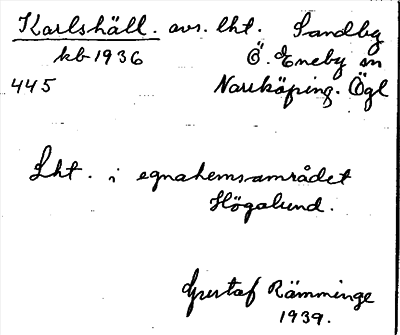 Karlshäll. avs. lht. Sandby
kb 1936 Ö. Eneby sn
445 Norrköping. Ögl
Lht. i egnahemsområdet
Högalund.
Gustaf Rämminge
1939.